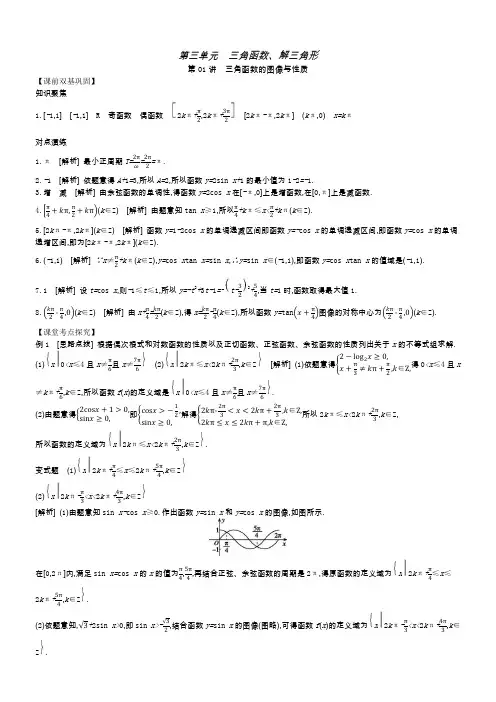 第三单元 三角函数、解三角形
第01讲 三角函数的图像与性质
【课前双基巩固】
知识聚焦
1.[-1,1] [-1,1] R 奇函数 偶函数 [2kπ+π/2,2kπ+3π/2] [2kπ-π,2kπ] (kπ,0) x=kπ
对点演练
1.π [解析] 最小正周期 T=2π/ω=2π/2=π.
2.-1 [解析] 依题意得 A+1=3,所以 A=2,所以函数 y=2sin x+1 的最小值为 1-2=-1.
3.增 减 [解析] 由余弦函数的单调性,得函数 y=2cos x 在[-π,0]上是增函数,在[0,π]上是减函数.
4.[π/4+kπ,π/2+kπ)(k∈Z) [解析] 由题意知 tan x≥1,所以π/4+kπ≤x<π/2+kπ(k∈Z).
5.[2kπ-π,2kπ](k∈Z) [解析] 函数 y=1-2cos x 的单调递减区间即函数 y=-cos x 的单调递减区间,即函数 y=cos x 的单调
递增区间,即为[2kπ-π,2kπ](k∈Z).
6.(-1,1) [解析] ∵x≠π/2+kπ(k∈Z),y=cos xtan x=sin x,∴y=sin x∈(-1,1),即函数 y=cos xtan x 的值域是(-1,1).
7.1 [解析] 设 t=cos x,则-1≤t≤1,所以 y=-t²+3t-1=-(t-3/2)²+5/4,当 t=1 时,函数取得最大值 1.
8.(kπ/2-π/4,0)(k∈Z) [解析] 由 x+π/4=kπ/2(k∈Z),得 x=kπ/2-π/4(k∈Z),所以函数 y=tan(x+π/4)图像的对称中心为(kπ/2-π/4,0)(k∈Z).
【课堂考点探究】
例 1 [思路点拨] 根据偶次根式和对数函数的性质以及正切函数、正弦函数、余弦函数的性质列出关于 x 的不等式组求解.
(1){x|0<x≤4 且 x≠π/6且 x≠7π/6} (2){x|2kπ≤x<2kπ+2π/3,k∈Z} [解析] (1)依题意得{2-log₂x≥0, x+π/3≠kπ+π/2,k∈Z,得 0<x≤4 且 x
≠kπ+π/6,k∈Z,所以函数 f(x)的定义域是{x|0<x≤4 且 x≠π/6且 x≠7π/6}.
(2)由题意得{2cosx+1>0, sinx≥0,即{cosx>-1/2, sinx≥0,解得{2kπ-2π/3<x<2kπ+2π/3,k∈Z, 2kπ≤x≤2kπ+π,k∈Z,所以 2kπ≤x<2kπ+2π/3,k∈Z,
所以函数的定义域为{x|2kπ≤x<2kπ+2π/3,k∈Z}.
变式题 (1){x|2kπ+π/4≤x≤2kπ+5π/4,k∈Z}
(2){x|2kπ-π/3<x<2kπ+4π/3,k∈Z}
[解析] (1)由题意知 sin x-cos x≥0.作出函数 y=sin x 和 y=cos x 的图像,如图所示.
y
1
5π/4
O π/4 π 2π x
-1
在[0,2π]内,满足 sin x=cos x 的 x 的值为π/4,5π/4,再结合正弦、余弦函数的周期是 2π,得原函数的定义域为{x|2kπ+π/4≤x≤
2kπ+5π/4,k∈Z}.
(2)依题意知,√3+2sin x>0,即 sin x>-√3/2,结合函数 y=sin x 的图像(图略),可得函数 f(x)的定义域为{x|2kπ-π/3<x<2kπ+4π/3,k∈
Z}.